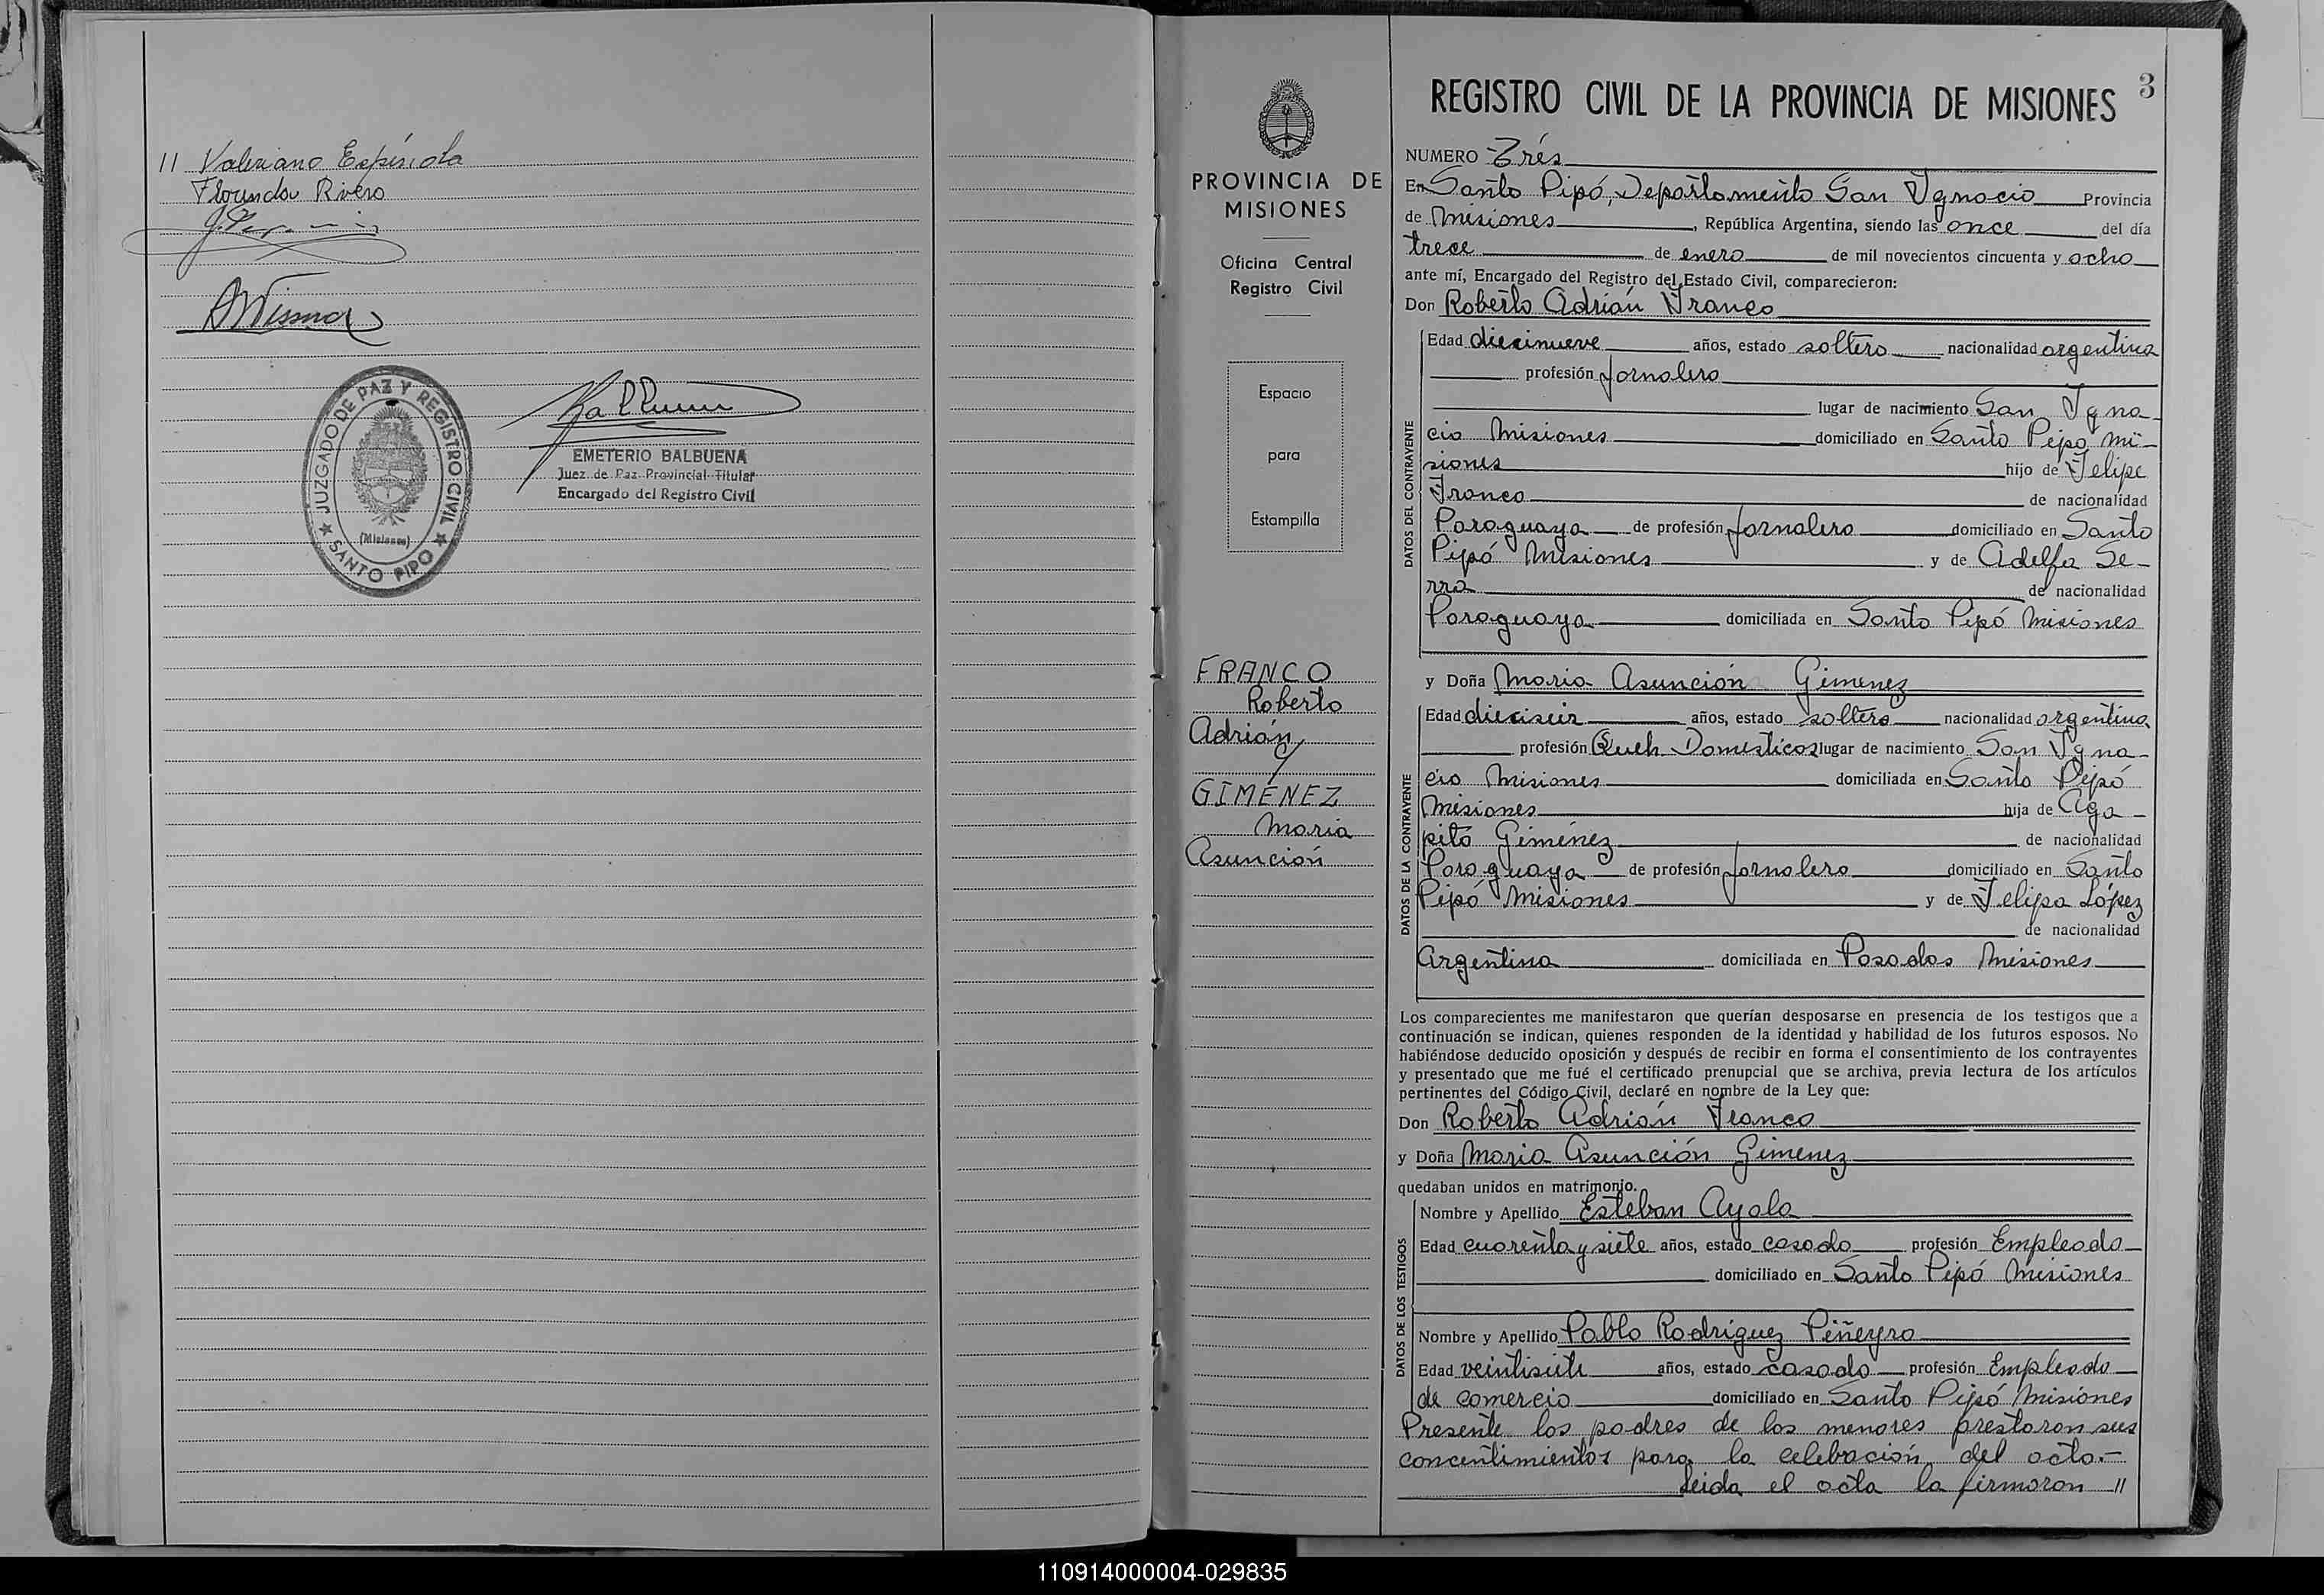 11 Valeriano Espíndola
Florinda Rivero
JUZGADO DE PAZ Y REGISTRO CIVIL
(Misiones)
★ SANTO PIPO ★
EMETERIO BALBUENA
Juez de Paz Provincial Titular
Encargado del Registro Civil
PROVINCIA DE
MISIONES
Oficina Central
Registro Civil
Espacio
para
Estampilla
FRANCO
Roberto
Adrián
y
GIMÉNEZ
Maria
Asunción
3
REGISTRO CIVIL DE LA PROVINCIA DE MISIONES
NUMERO Trés
En Santo Pipó, Departamento San Ignacio Provincia
de Misiones, República Argentina, siendo las once del día
trece de enero de mil novecientos cincuenta y ocho
ante mí, Encargado del Registro del Estado Civil, comparecieron:
Don Roberto Adrián Franco
DATOS DEL CONTRAYENTE
Edad diecinueve años, estado soltero nacionalidad argentina
profesión Jornalero
lugar de nacimiento San Igna-
cio Misiones domiciliado en Santo Pipó Mi-
siones hijo de Felipe
Franco de nacionalidad
Paraguaya de profesión Jornalero domiciliado en Santo
Pipó Misiones y de Adelfa Se-
rra de nacionalidad
Paraguaya domiciliada en Santo Pipó Misiones
y Doña Maria Asunción Gimenez
DATOS DE LA CONTRAYENTE
Edad dieciseis años, estado soltera nacionalidad argentina
profesión Queh. Domesticos lugar de nacimiento San Igna-
cio Misiones domiciliada en Santo Pipó
Misiones hija de Aga-
pito Giménez de nacionalidad
Paraguaya de profesión Jornalero domiciliado en Santo
Pipó Misiones y de Felipa López
de nacionalidad
Argentina domiciliada en Posadas Misiones
Los comparecientes me manifestaron que querían desposarse en presencia de los testigos que a
continuación se indican, quienes responden de la identidad y habilidad de los futuros esposos. No
habiéndose deducido oposición y después de recibir en forma el consentimiento de los contrayentes
y presentado que me fué el certificado prenupcial que se archiva, previa lectura de los artículos
pertinentes del Código Civil, declaré en nombre de la Ley que:
Don Roberto Adrián Franco
y Doña Maria Asunción Gimenez
quedaban unidos en matrimonio.
DATOS DE LOS TESTIGOS
Nombre y Apellido Esteban Ayala
Edad cuarenta y siete años, estado casado profesión Empleado
domiciliado en Santo Pipó Misiones
Nombre y Apellido Pablo Rodriguez Piñeyro
Edad veintisiete años, estado casado profesión Empleado
de comercio domiciliado en Santo Pipó Misiones
Presente los padres de los menores prestaron sus
concentimientos para la celebación del acto.-
Leida el acta la firmaron 11
110914000004-029835